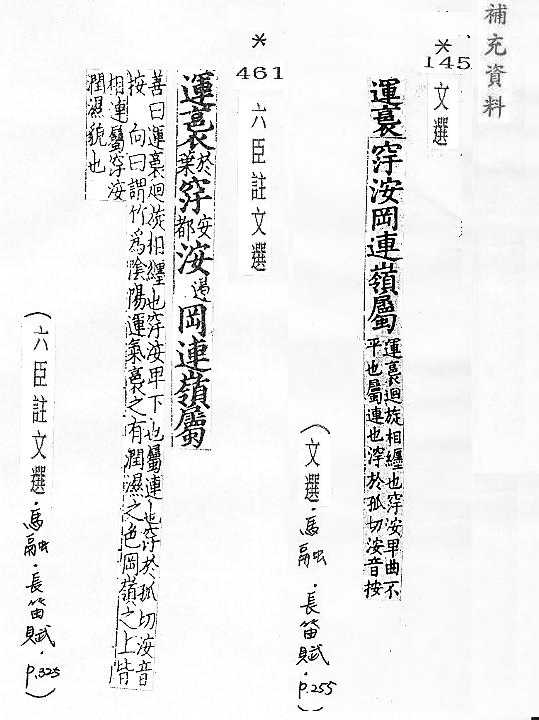 補充資料
*
145
文選
運裛窏洝岡連嶺屬
運裛迴旋相纏也窏洝卑曲不
平也屬連也窏於孤切洝音按
(文選·馬融·長笛賦·p.255)
*
461
六臣註文選
運裛於業窏安都洝遏岡連嶺屬
善曰運裛迴旋相纏也窏洝卑下也屬連也窏於孤切洝音
按 向曰謂竹為陰陽運氣裛之有潤濕之色岡嶺之上皆
相連屬窏洝
潤濕貌也
(六臣註文選·馬融·長笛賦·p.325)